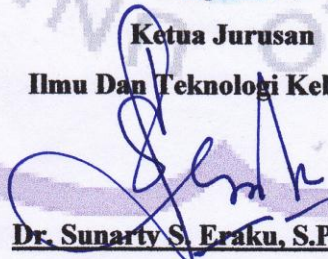 Ketua Jurusan
Ilmu Dan Teknologi Ke
Dr. Sunarty S. Eraku, S.P